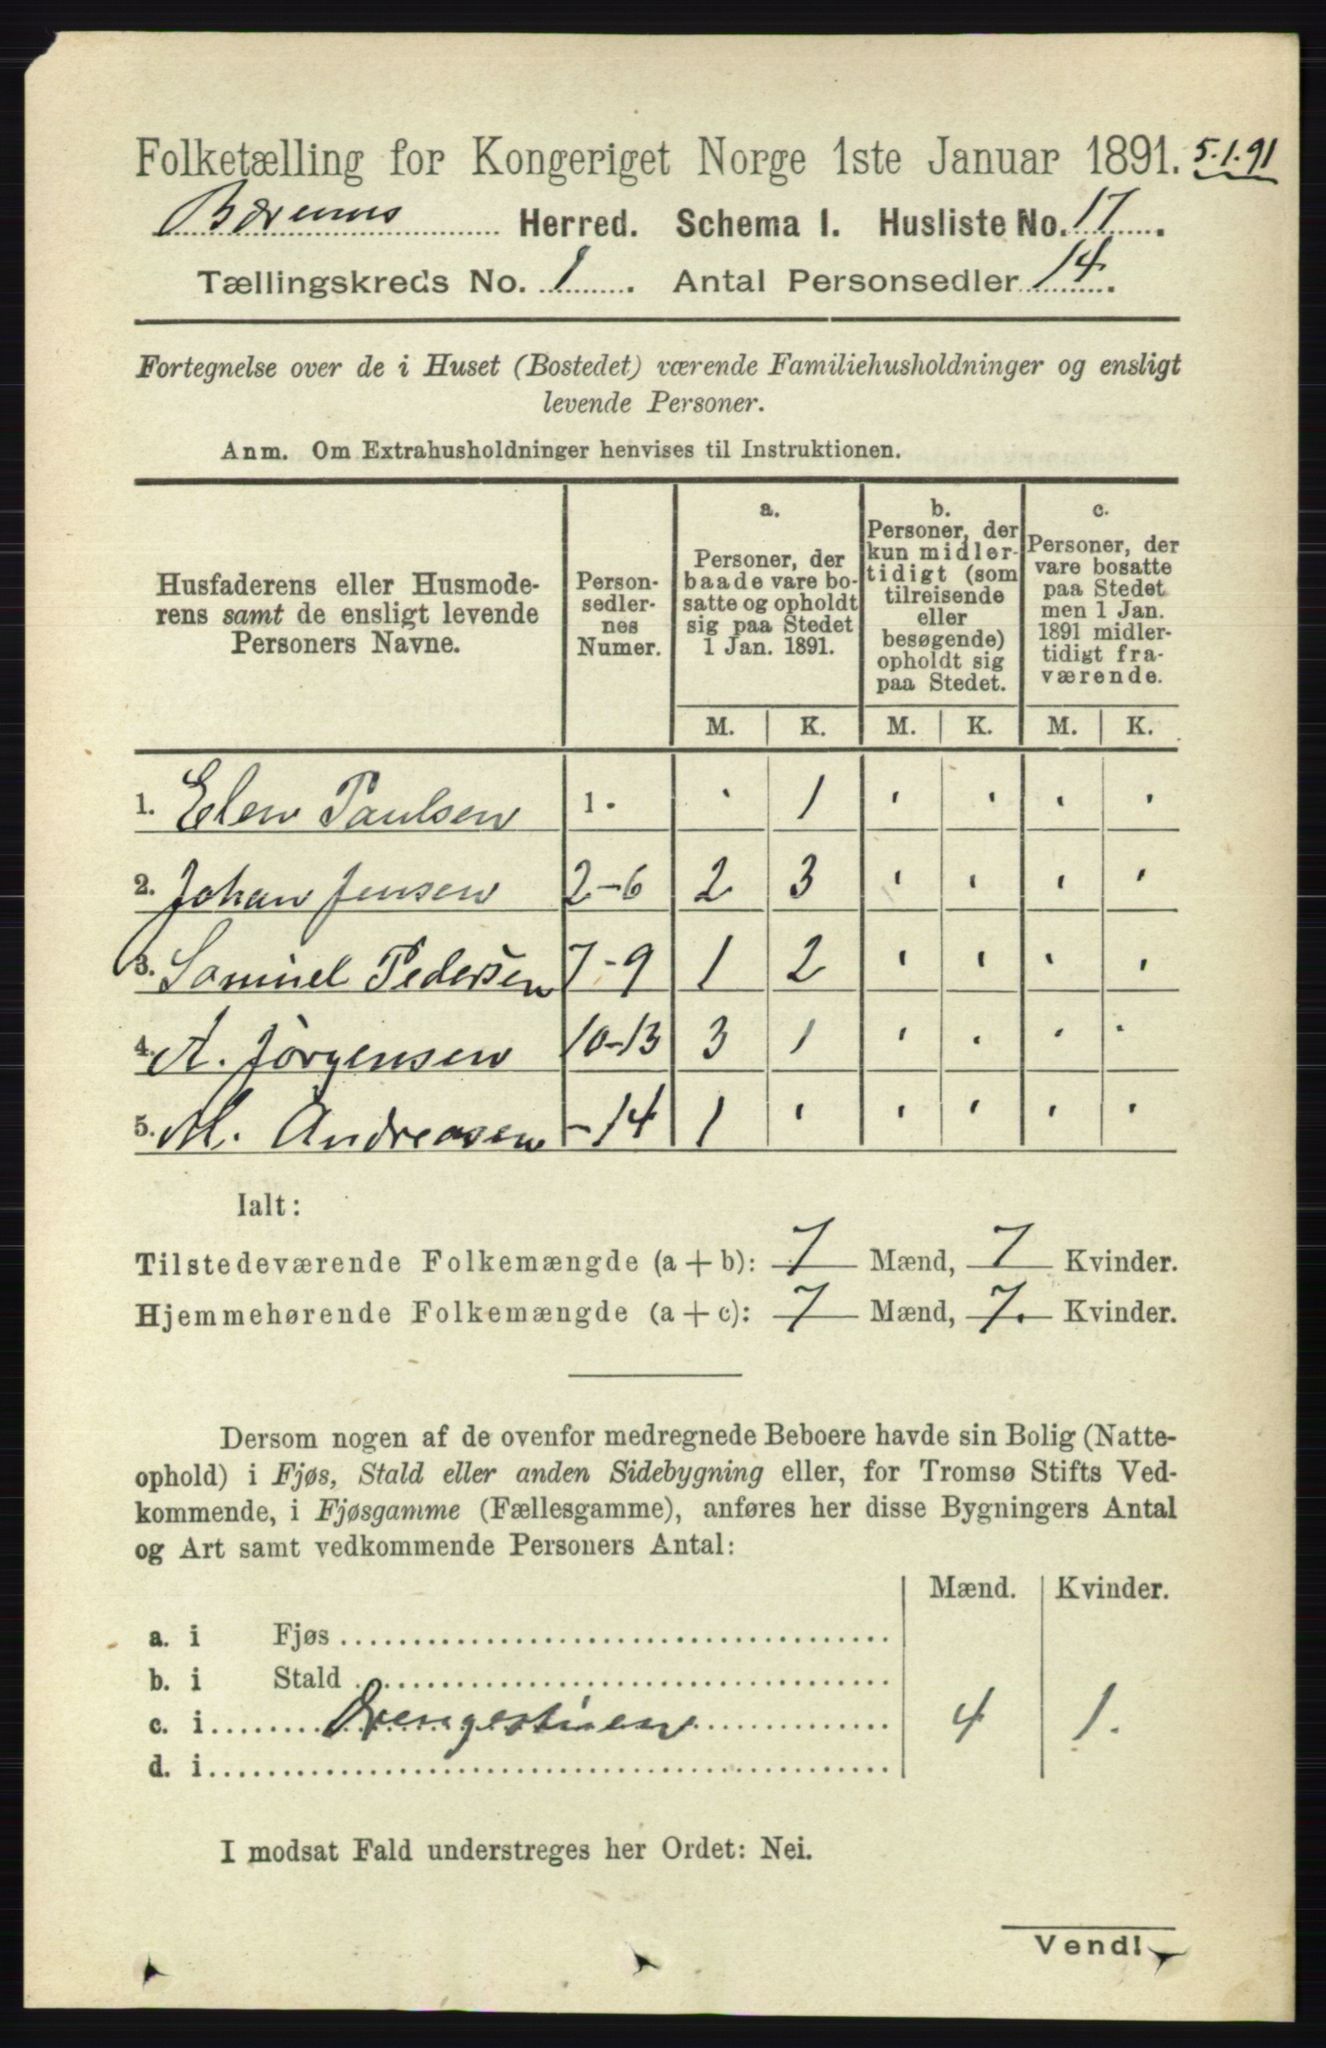 Folketælling for Kongeriget Norge 1ste Januar 1891. 5.1.91
Bærums Herred. Schema I. Husliste No. 17.
Tællingskreds No. 1. Antal Personsedler 14.
Fortegnelse over de i Huset (Bostedet) værende Familiehusholdninger og ensligt
levende Personer.
Anm. Om Extrahusholdninger henvises til Instruktionen.
Husfaderens eller Husmode-
rens samt de ensligt levende
Personers Navne.
Person-
sedler-
nes
Numer.
a.
Personer, der
baade vare bo-
satte og opholdt
sig paa Stedet
1 Jan. 1891.
b.
Personer, der
kun midler-
tidigt (som
tilreisende
eller
besøgende)
opholdt sig
paa Stedet.
c.
Personer, der
vare bosatte
paa Stedet
men 1 Jan.
1891 midler-
tidigt fra-
værende.
M. K. M. K. M. K.
1. Elen Paulsen 1. · 1 · · · ·
2. Johan Jensen 2-6 2 3 · · · ·
3. Samuel Pedersen 7-9 1 2 · · · ·
4. A. Jörgensen 10-13 3 1 · · · ·
5. M. Andreasen -14 1 · · · · ·
Ialt:
Tilstedeværende Folkemængde (a + b): 7 Mænd, 7 Kvinder.
Hjemmehørende Folkemængde (a + c): 7 Mænd, 7. Kvinder.
Dersom nogen af de ovenfor medregnede Beboere havde sin Bolig (Natte-
ophold) i Fjøs, Stald eller anden Sidebygning eller, for Tromsø Stifts Ved-
kommende, i Fjøsgamme (Fællesgamme), anføres her disse Bygningers Antal
og Art samt vedkommende Personers Antal:
Mænd. Kvinder.
a. i Fjøs
b. i Stald
c. i Drengestuen 4 1.
d. i
I modsat Fald understreges her Ordet: Nei.
Vend!